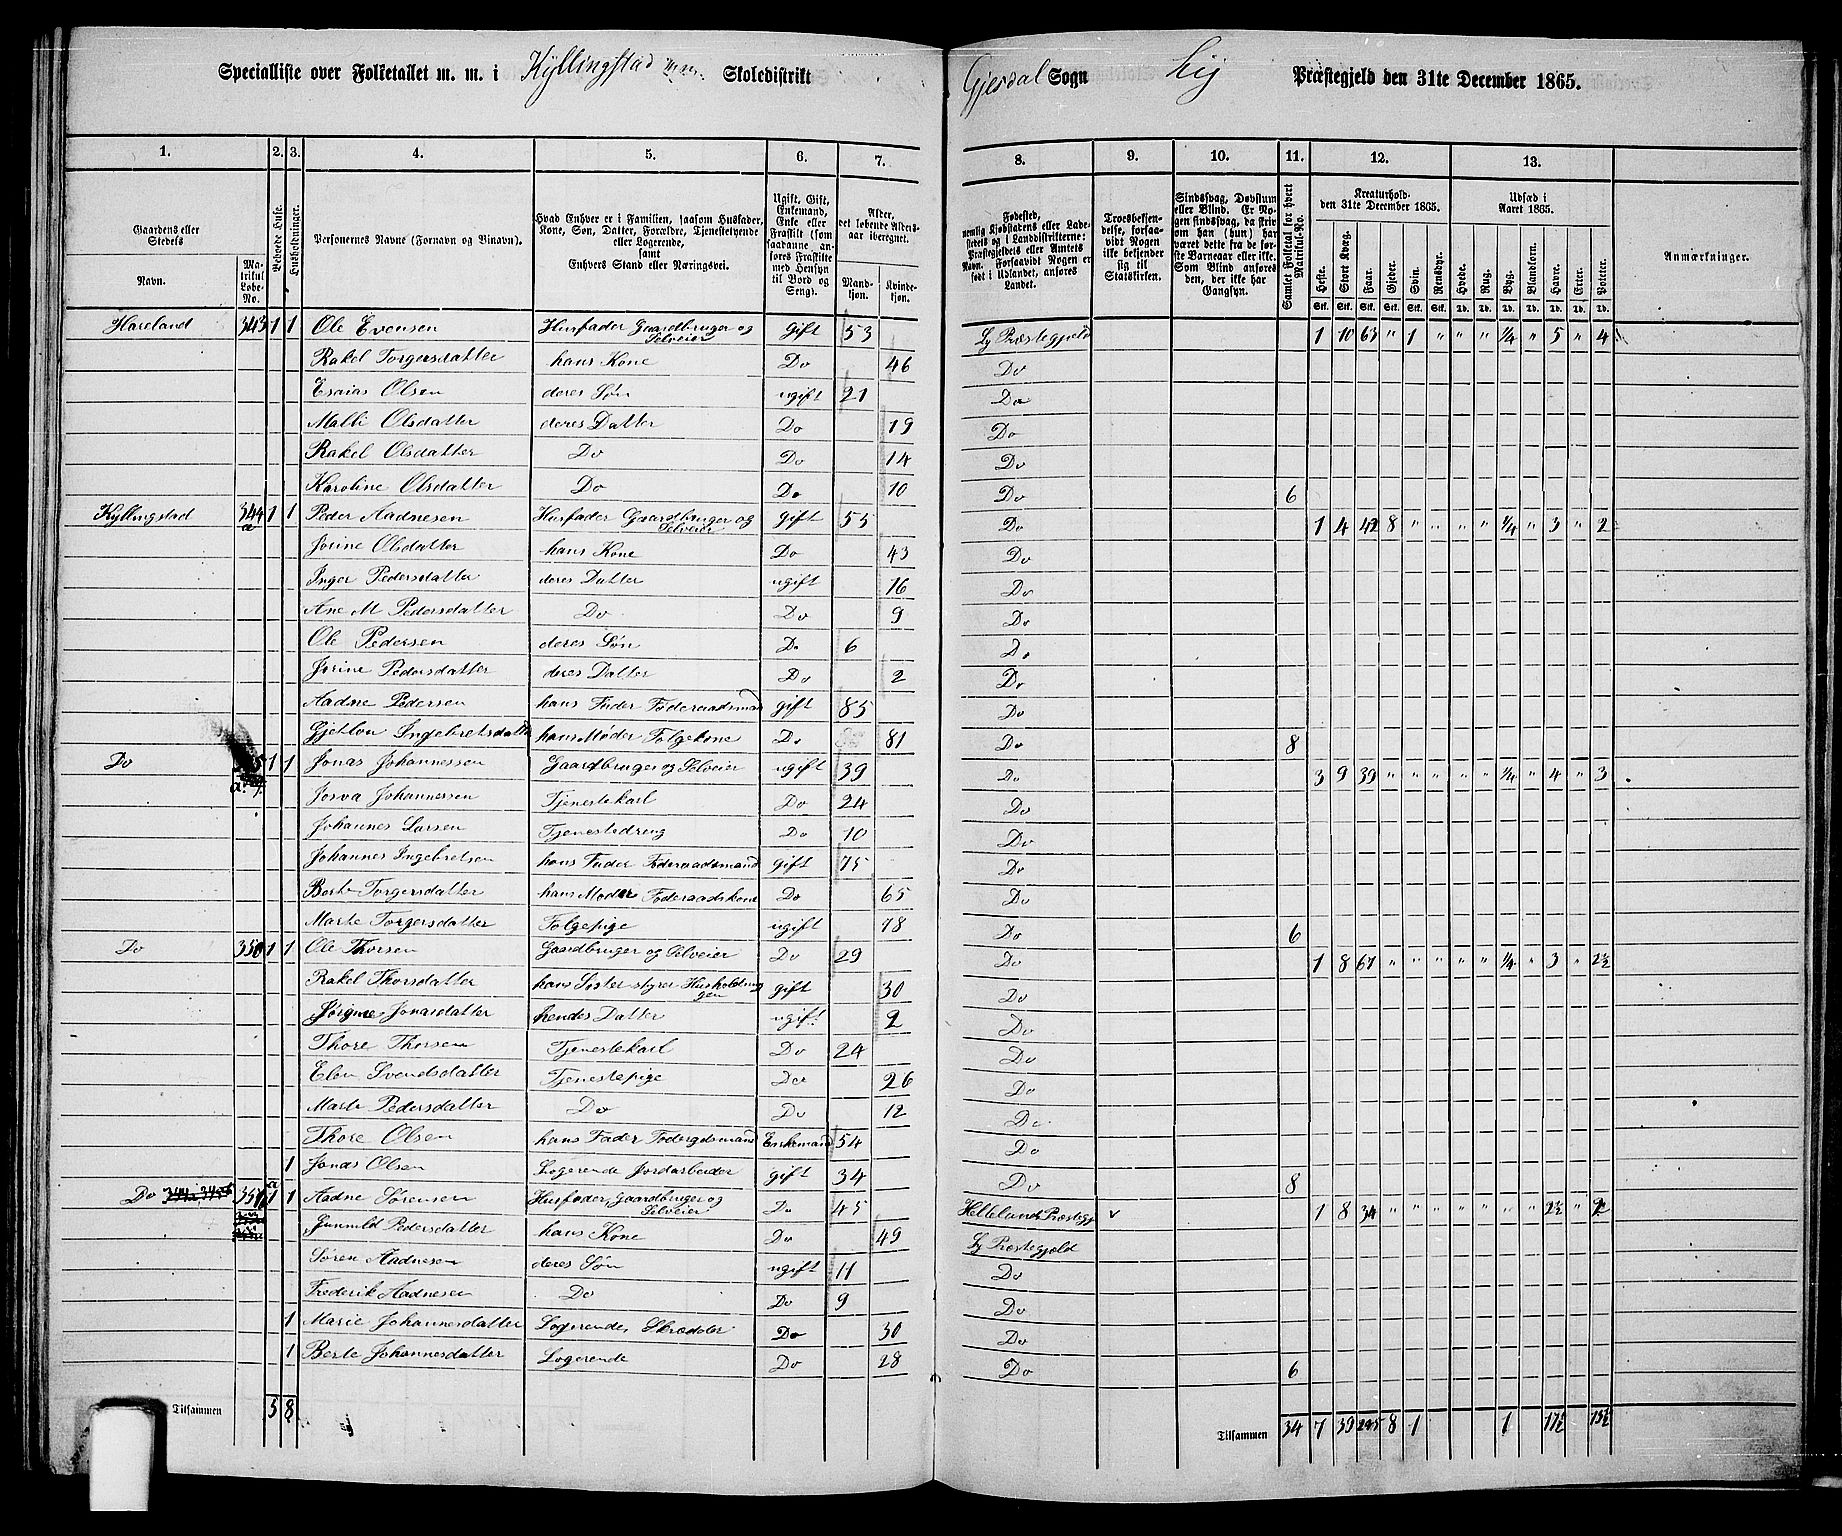 Specialliste over Folketallet m. m. i Kyllingstad m.m. Skoledistrikt Gjesdal Sogn Lij Præstegjeld den 31te December 1865.
1. 2. 3. 4. 5. 6. 7. 8. 9. 10. 11. 12. 13.
Gaardens eller Stedets Navn. Matrikul Løbe-No. Beboede Huse. Husholdninger. Personernes Navne (Fornavn og Tilnavn). Hvad Enhver er i Familien, saasom Husfader, Kone, Søn, Datter, Forældre, Tjenestetyende eller Logerende, samt Enhvers Stand eller Næringsvei. Ugift, Gift, Enkemand, Enke eller Fraskilt (som saadanne anføres Fraskilte med Hensyn til Bord og Seng). Alder, det løbende Aldersaar iberegnet. Mandkjøn. Kvindekjøn.
Fødested, nemlig Kjøbstadens eller Ladestedets og i Landdistrikterne: Præstegjeldets eller Amtets Navn. Forsaavidt Nogen er født i Udlandet, anføres Landet. Troesbekjendelse, forsaavidt Nogen ikke bekjender sig til Statskirken. Sindssvag, Døvstum eller Blind. Er Nogen sindssvag, da skriver om han (hun) har været dette fra de første Barneaar eller ikke. Som Blind anføres den, der ikke har Gangsyn. Samlet Folketal for hvert Matrikul-No. Kreaturhold den 31te December 1865. Heste. Stort Kvæg. Faar. Gjeder. Svin. Rensdyr. Udsæd i Aaret 1865. Hvede. Rug. Byg. Blandkorn. Havre. Erter. Poteter. Anmærkninger.
Hareland 343 1 1 Ole Evensen Husfader Gaardbruger og Selveier gift 53 Ly Præstegjeld 1 10 63 " 1 " " " 1/4 " 5 " 4
Rakel Torgersdatter hans Kone Do 46 Do
Esaias Olsen deres Søn ugift 21 Do
Malli Olsdatter deres Datter Do 19 Do
Rakel Olsdatter Do Do 14 Do
Karoline Olsdatter Do Do 10 Do 6
Kyllingstad 344 a 1 1 Peder Aadnesen Husfader Gaardbruger og Selveier gift 55 Do 1 4 42 8 " " " " 1/4 " 3 " 2
Jorine Olsdatter hans Kone Do 43 Do
Inger Pedersdatter deres Datter ugift 16 Do
Ane M Pedersdatter Do Do 9 Do
Ole Pedersen deres Søn Do 6 Do
Jorine Pedersdatter deres Datter Do 2 Do
Aadne Pedersen hans Fader Føderaadsmand gift 85 Do
Gjetlou Ingebretsdatter hans Moder Folgekone Do 81 Do 8
Do 1 1 Jonas Johannessen Gaardbruger og Selveier ugift 39 Do 3 9 39 " " " " " 1/4 " 4 " 3
Josva Johannessen Tjenestekarl Do 24 Do
Johannes Larsen Tjenestedreng Do 10 Do
Johannes Ingebretsen hans Fader Føderaadsmand gift 75 Do
Berte Torgersdatter hans Moder Føderaadskone Do 65 Do
Marte Torgersdatter Folgepige ugift 78 Do 6
Do 350 1 1 Ole Thorsen Gaardbruger og Selveier Do 29 Do 1 8 67 " " " " " 1/4 " 3 " 2½
Rakel Thorsdatter hans Søster styrer Husholdningen gift 30 Do
Jørgine Jonasdatter hendes Datter ugift 2 Do
Thore Thorsen Tjenestekarl Do 24 Do
Elen Svendsdatter Tjenestepige Do 26 Do
Marte Pedersdatter Do Do 12 Do
Thore Olsen hans Fader Foderadsmand Enkemand 54 Do
1 Jonas Olsen Logerende Jordarbeider gift 34 Do 8
Do 351 a 1 1 Aadne Sørensen Husfader, Gaardbruger og Selveier Do 45 Hellelands Præstegj v 1 8 34 " " " " " " " 2½ " 2
Gunnild Pedersdatter hans Kone Do 49 Ly Præstegjeld
Søren Aadnesen deres Søn ugift 11 Do
Frederik Aadnesen Do Do 9 Do
1 Marie Johannesdatter Logerende, Skrædder Do 30 Do
1 Berte Johannesdatter Logerende Do 28 Do 6
Tilsammen 5 8 Tilsammen 34 7 39 245 8 1 1 17½ 13½